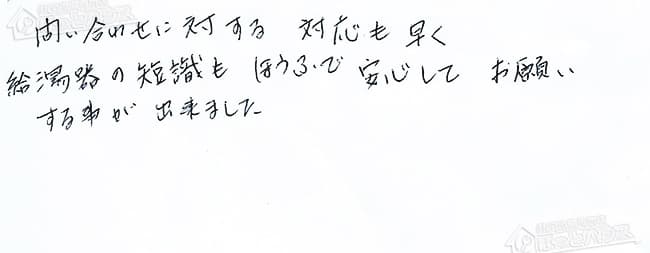 問い合わせに対する 対応も早く
給湯器の知識も ほうふで 安心して お願い
する事が 出来ました